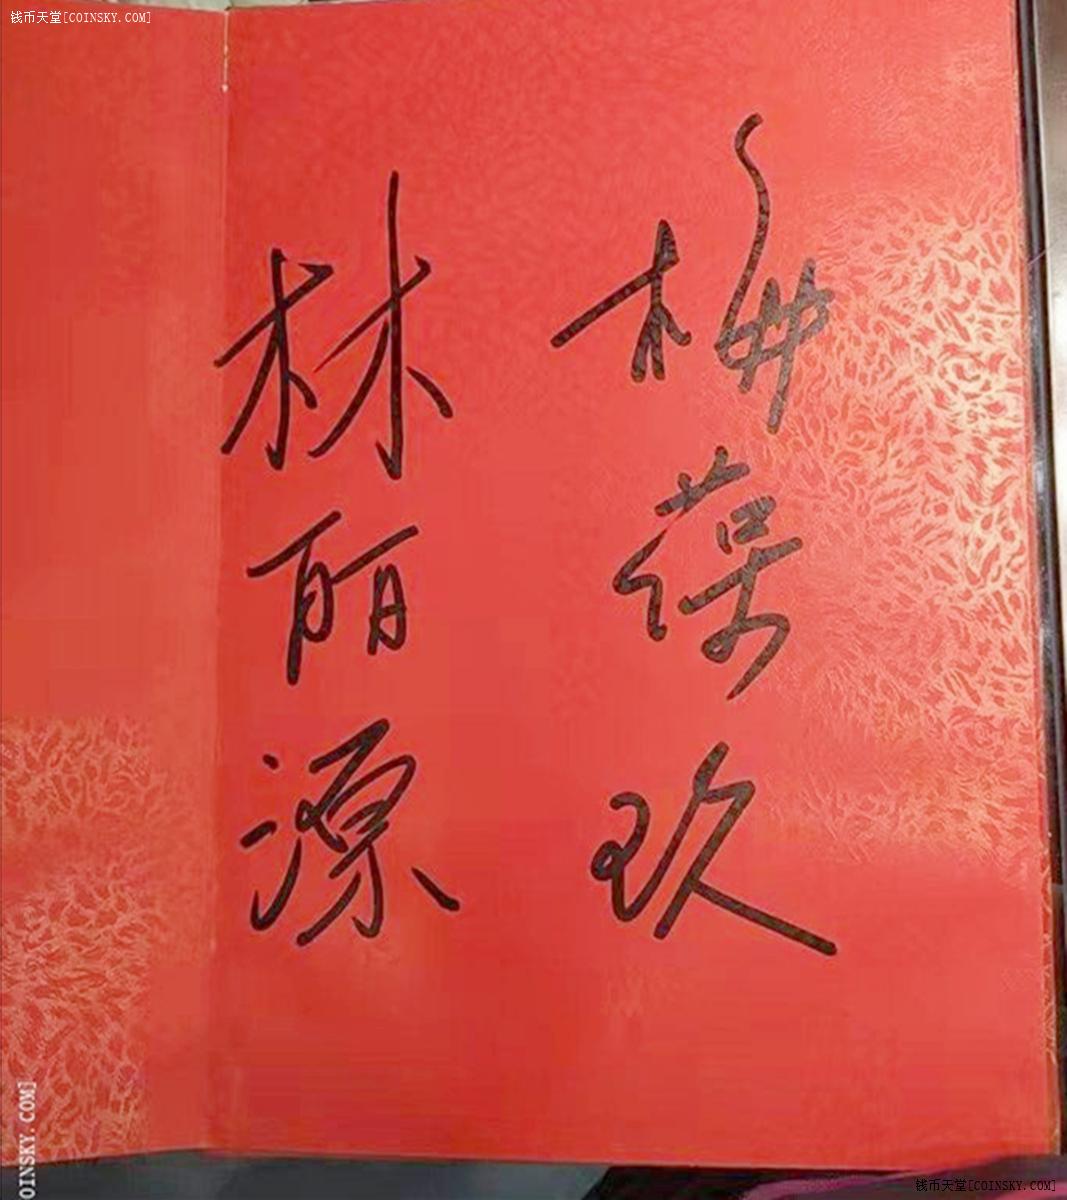 钱币天堂[COINSKY.COM]
梅葆玖
林丽源
OINSKY.COM]
钱币天堂[COINSKY.COM]